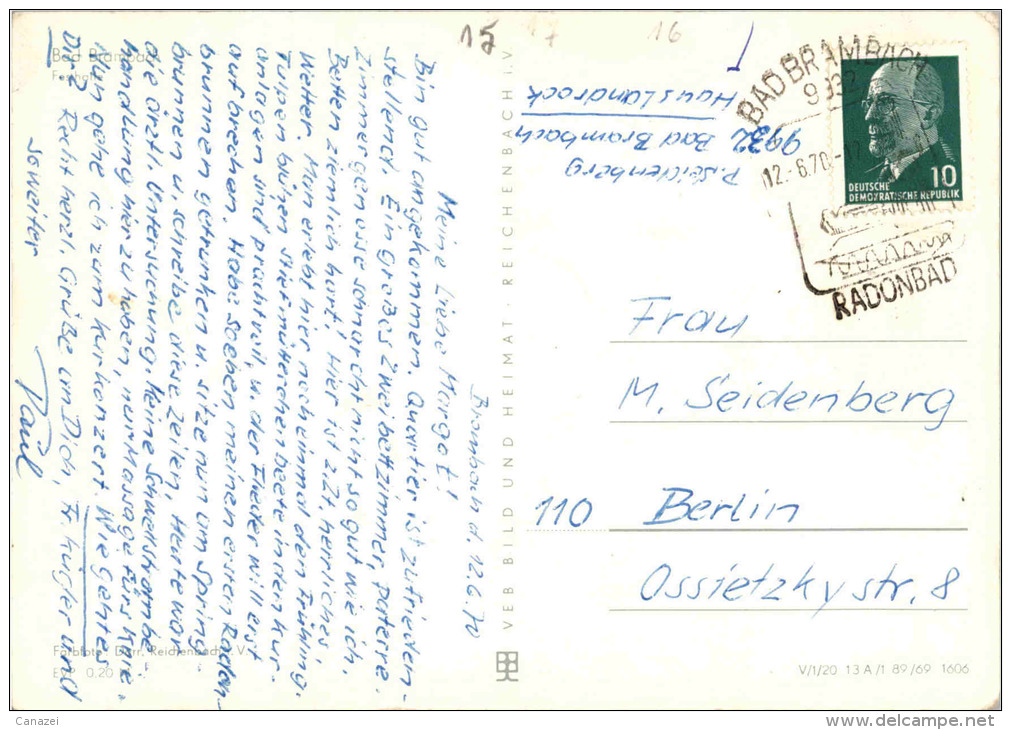 15
17
16
Bad Brambach
Brambach d. 12.6.70
Meine Liebe Margot!
Bin gut angekommen. Quartier ist zufrieden-
stellend. Ein großes Zweibettzimmer, parterre.
Zimmergenosse schnarcht nicht so gut wie ich.
Betten ziemlich hart. Hier ist z.Zt. herrliches
Wetter. Man erlebt hier noch einmal den Frühling.
Tulpen blühen, Stiefmütterchenbeete in den Kur-
anlagen sind prachtvoll, u. der Flieder will erst
aufbrechen. Habe soeben meinen ersten Radon-
brunnen getrunken u. sitze nun am Spring-
brunnen u. schreibe diese Zeilen. Heute war
die ärztl. Untersuchung. Keine Schwellstrombe-
handlung hier zu haben, nur Massage fürs Knie.
Nun gehe ich zum Kurkonzert. Wie geht es
Dir? Recht herzl. Grüße an Dich, Fr. Kugler und
so weiter
Paul
Farbfoto: Darr, Reichenbach i. V.
EVP 0.20 M
VEB BILD UND HEIMAT · REICHENBACH I. V
P. Seidenberg
9932 Bad Brambach
Haus Landrock
BAD BRAMBACH
9932
12.-6.70
RADONBAD
10
DEUTSCHE
DEMOKRATISCHE REPUBLIK
Frau
M. Seidenberg
110 Berlin
Ossietzkystr. 8
V/1/20 13 A/1 89/69 1606
Canazei
www.delcampe.net